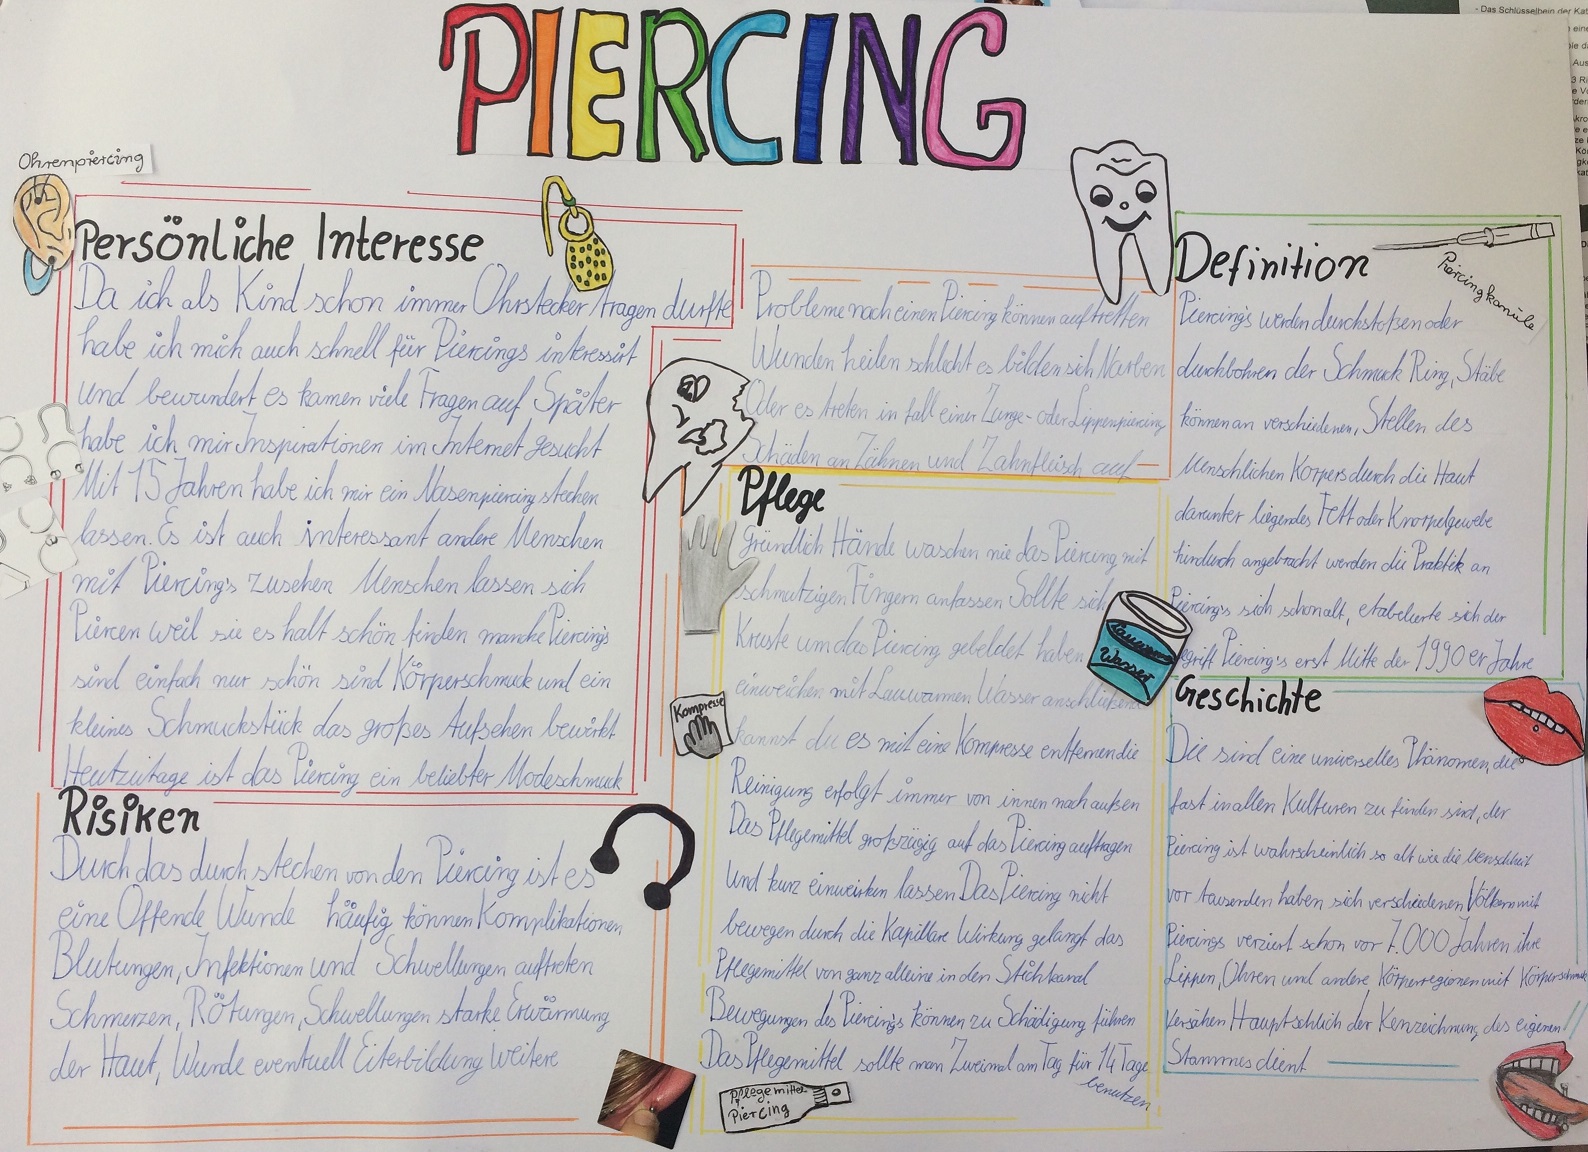 PIERCING
Ohrenpiercing
Persönliche Interesse
Da ich als Kind schon immer Ohrstecker tragen durfte
habe ich mich auch schnell für Piercings interessirt
und bewundert es kamen viele Fragen auf Später
habe ich mir Inspirationen im Internet gesucht
Mit 15 Jahren habe ich mir ein Nasenpiercing stechen
lassen. Es ist auch interessant andere Menschen
mit Piercing's zusehen Menschen lassen sich
Piercen weil sie es halt schön finden manche Piercing's
sind einfach nur schön sind Körperschmuck und ein
kleines Schmuckstück das großes Aufsehen bewirkt
Heutzutage ist das Piercing ein beliebter Modeschmuck
Risiken
Durch das durchstechen von den Piercing ist es
eine Offende Wunde häufig können Komplikationen
Blutungen, Infektionen und Schwellungen auftreten
Schmerzen, Rötungen, Schwellungen starke Erwärmung
der Haut, Wunde eventuell Eiterbildung Weitere
Probleme nach einen Piercing können auftretten
Wunden heilen schlecht es bilden sich Narben
Oder es treten in fall einer Zunge- oder Lippenpiercing
Schäden an Zähnen und Zahnfleisch auf
Pflege
Gründlich Hände waschen nie das Piercing mit
schmutzigen Fingern anfassen Sollte sich
Kruste um das Piercing gebeldet haben
einweichen mit Lauwarmen Wasser anschließend
kannst du es mit eine Kompresse entfernen die
Reinigung erfolgt immer von innen nach außen
Das Pflegemittel großzügig auf das Piercing auftragen
Und kurz einwirken lassen Das Piercing nicht
bewegen durch die Kapillare Wirkung gelangt das
Pflegemittel von ganz alleine in den Stichkanal
Bewegungen des Piercing's können zu Schädigung führen
Das Pflegemittel sollte man Zweimal am Tag für 14 Tage
benutzen
Kompresse
Lauwarmes
Wasser
Pflegemittel
Piercing
Definition
Piercingkanüle
Piercing's werden durchstoßen oder
durchbohren der Schmuck Ring, Stäbe
können an verschiedenen, Stellen des
Menschlichen Körpers durch die Haut
darunter liegendes Fett oder Knorpelgewebe
hindurch angebracht werden die Praktik an
Piercing's sich schon alt, etabelierte sich der
egriff Piercing's erst Mitte der 1990er Jahre
Geschichte
Die sind eine universelles Phänomen, die
fast in allen Kulturen zu finden sind, der
Piercing ist wahrscheinlich so alt wie die Menschheit
vor tausenden haben sich verschiedenen Völkern mit
Piercings verziert schon vor 7.000 Jahren ihre
Lippen, Ohren und andere Körperregionen mit Körperschmuck
versähen Hauptschlich der Kenzeichnung des eigenen
Stammes dient
- Das Schlüsselbein der Kat